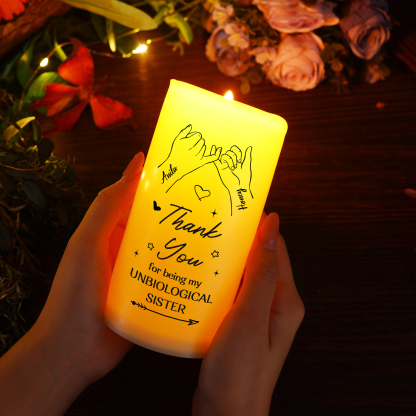 Anila
Thank
You
for being my
UNBIOLOGICAL
SISTER